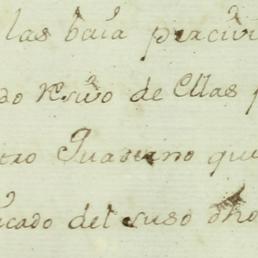 las baia percivi
do Resivo de Ellas
tro Quaderno que
icado del suso dho